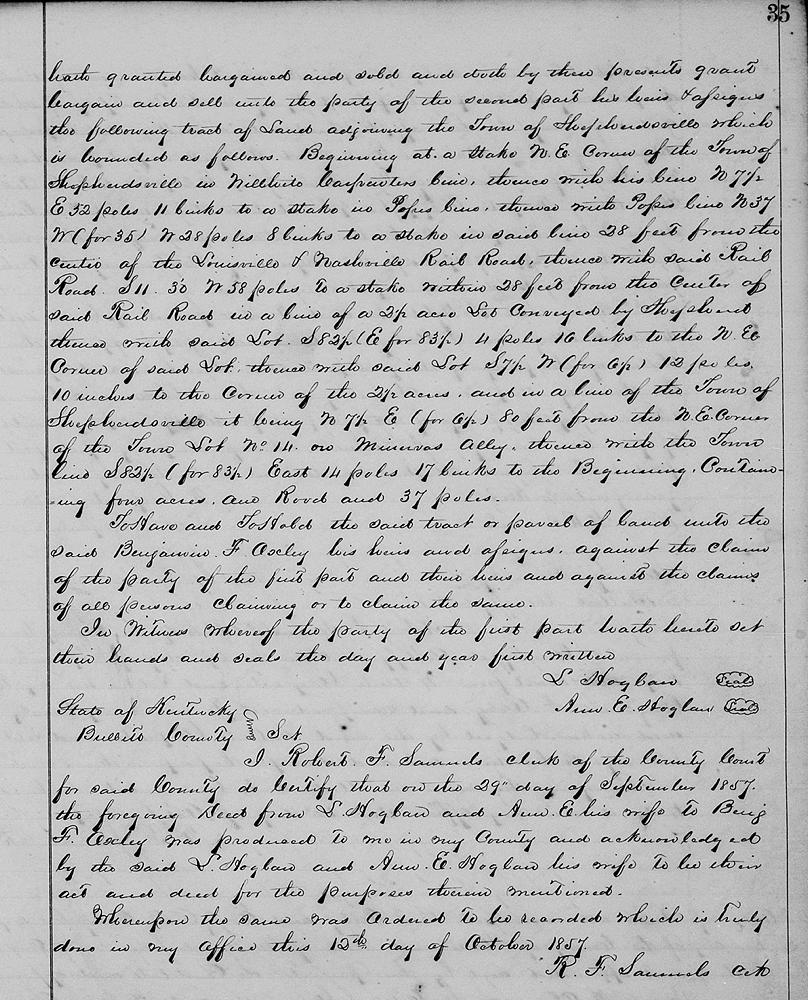 35
hath granted bargained and sold and doth by these presents grant
bargain and sell unto the party of the second part his heirs & assigns
the following tract of Land adjoining the Town of Shepherdsville which
is bounded as follows. Beginning at a stake N. E. Corner of the Town of
Shepherdsville in Willhite Carpenters line, thence with his line N 7½
E 32 poles 11 links to a stake in Popes line, thence with Popes line N 37
W (for 35) W 28 poles 8 links to a stake in said line 28 feet from the
center of the Louisville & Nashville Rail Road, thence with said Rail
Road S 11. 30 W 58 poles to a stake within 28 feet from the Center of
said Rail Road in a line of a 2½ acre Lot Conveyed by Shepherd
thence with said Lot. S 82½ (E for 83½) 4 poles 16 links to the N. E
Corner of said Lot, thence with said Lot S 7½ W (for 6½) 12 poles.
10 inches to the Corner of the 2½ acres, and in a line of the Town of
Shepherdsville it being N 7½ E (for 6½) 80 feet from the N. E. Corner
of the Town Lot No 14. on Minervas Alley, thence with the Town
line S 82½ (for 83½) East 14 poles 17 links to the Beginning, Contain-
-ing four acres, one Rood and 37 poles.
To Have and To Hold the said tract or parcel of land unto the
said Benjamin F Oxley his heirs and assigns, against the claim
of the party of the first part and their heirs and against the claims
of all persons Claiming or to claim the same.
In Witness Whereof the party of the first part hath hereto set
their hands and seals the day and year first written
L Hoglan Seal
Ann. E. Hoglan Seal
State of Kentucky
Bullitt County Sct
I, Robert. F. Samuels clerk of the County Court
for said County do Certify that on the 29" day of September 1857.
the foregoing Deed from L. Hoglan and Ann. E. his wife to Benj
F. Oxley was produced to me in my County and acknowledged
by the said L. Hoglan and Ann. E. Hoglan his wife to be their
act and deed for the purposes therein mentioned.
Whereupon the same was Ordered to be recorded which is truly
done in my office this 12th day of October 1857.
R. F. Samuels Clk